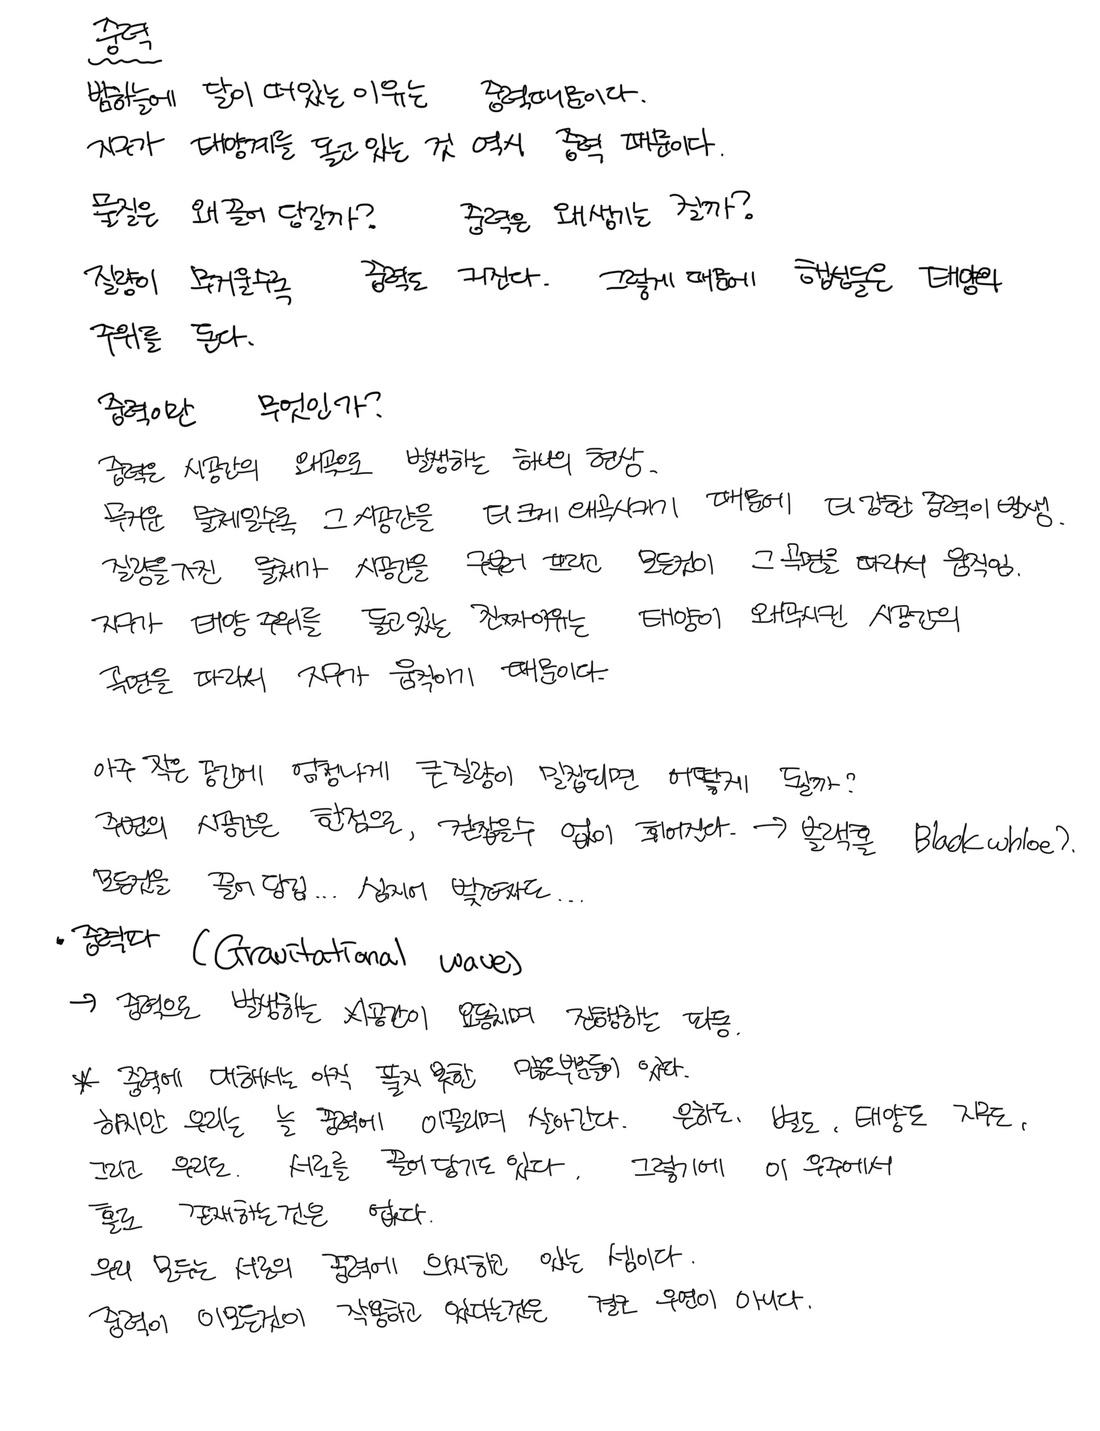 중력
밤하늘에 달이 떠있는 이유는 중력때문이다.
지구가 태양계를 돌고 있는 것 역시 중력 때문이다.
물질은 왜 끌어 당길까? 중력은 왜 생기는 걸까?
질량이 무거울수록 중력도 커진다. 그렇게 때문에 행성들은 태양의
주위를 돈다.
중력이란 무엇인가?
중력은 시공간의 왜곡으로 발생하는 하나의 현상.
무거운 물체일수록 그 시공간을 더 크게 왜곡시키기 때문에 더 강한 중력이 발생.
질량을 가진 물체가 시공간을 모든것이 그 곡면을 따라서 움직임.
지구가 태양 주위를 돌고있는 진짜이유는 태양이 왜곡시킨 시공간의
곡면을 따라서 지구가 움직이기 때문이다.
아주 작은 공간에 엄청나게 큰 질량이 밀집되면 어떻게 될까?
주변의 시공간은 한점으로, 걷잡을수 없이 휘어진다. → 블랙홀 Black whloe?.
모든것을 끌어 당김... 심지어 빛정차도...
· 중력파 (Gravitational wave)
→ 중력으로 발생하는 시공간이 요동치며 진행하는 파동.
* 중력에 대해서는 아직 풀지 못한 많은부분들이 있다.
하지만 우리는 늘 중력에 이끌리며 살아간다. 은하도, 별도, 태양도 지구도,
그리고 우리도. 서로를 끌어 당기고 있다. 그렇기에 이 우주에서
홀로 존재하는것은 없다.
우리 모두는 서로의 중력에 의지하고 있는 셈이다.
중력이 이모든것이 작용하고 있다는것은 결코 우연이 아니다.